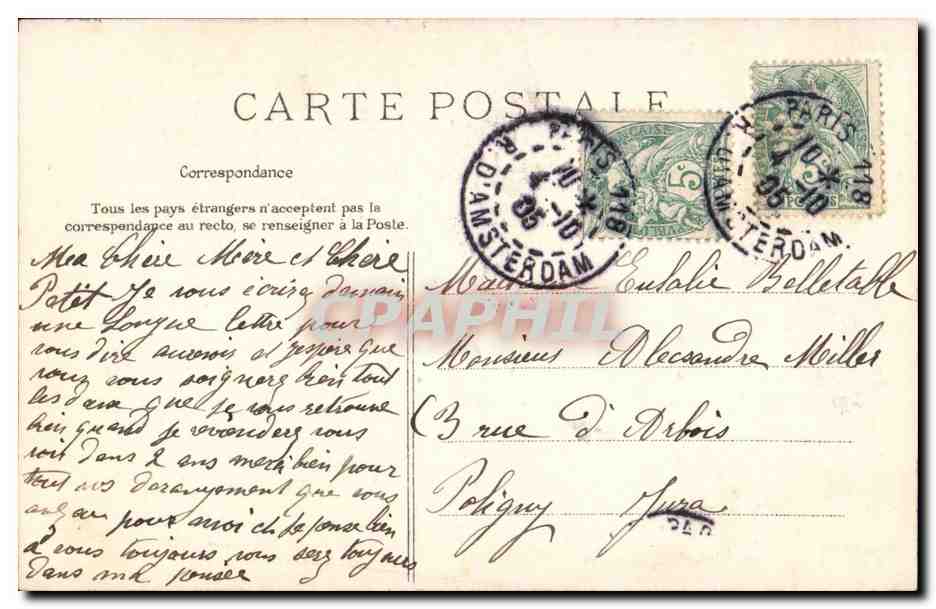 CARTE POSTALE
Correspondance
Tous les pays étrangers n'acceptent pas la
correspondance au recto, se renseigner à la Poste.
PARIS 118
10 *
4 -10
05
R. D'AMSTERDAM
5c
PARIS 118
10 *
4 -10
05
R. D'AMSTERDAM
5
POSTES
Ma Chère Mère et Chère
Petit Je vous écrirez demain
une Longue lettre pour
vous dire auvoir et j'espère que
vous vous soignere bien tout
les deux que je vous retrouve
bien quand je reviendrez vous
voir dans 2 ans merci bien pour
tout vos derangement que vous
pour moi et je pense bien
à vous toujours vous serez toujours
dans ma pensée
Eulalie Belletable
Monsieur Alecsandre Miller
3 rue d'Arbois
Poligny Jura
CPAPHIL